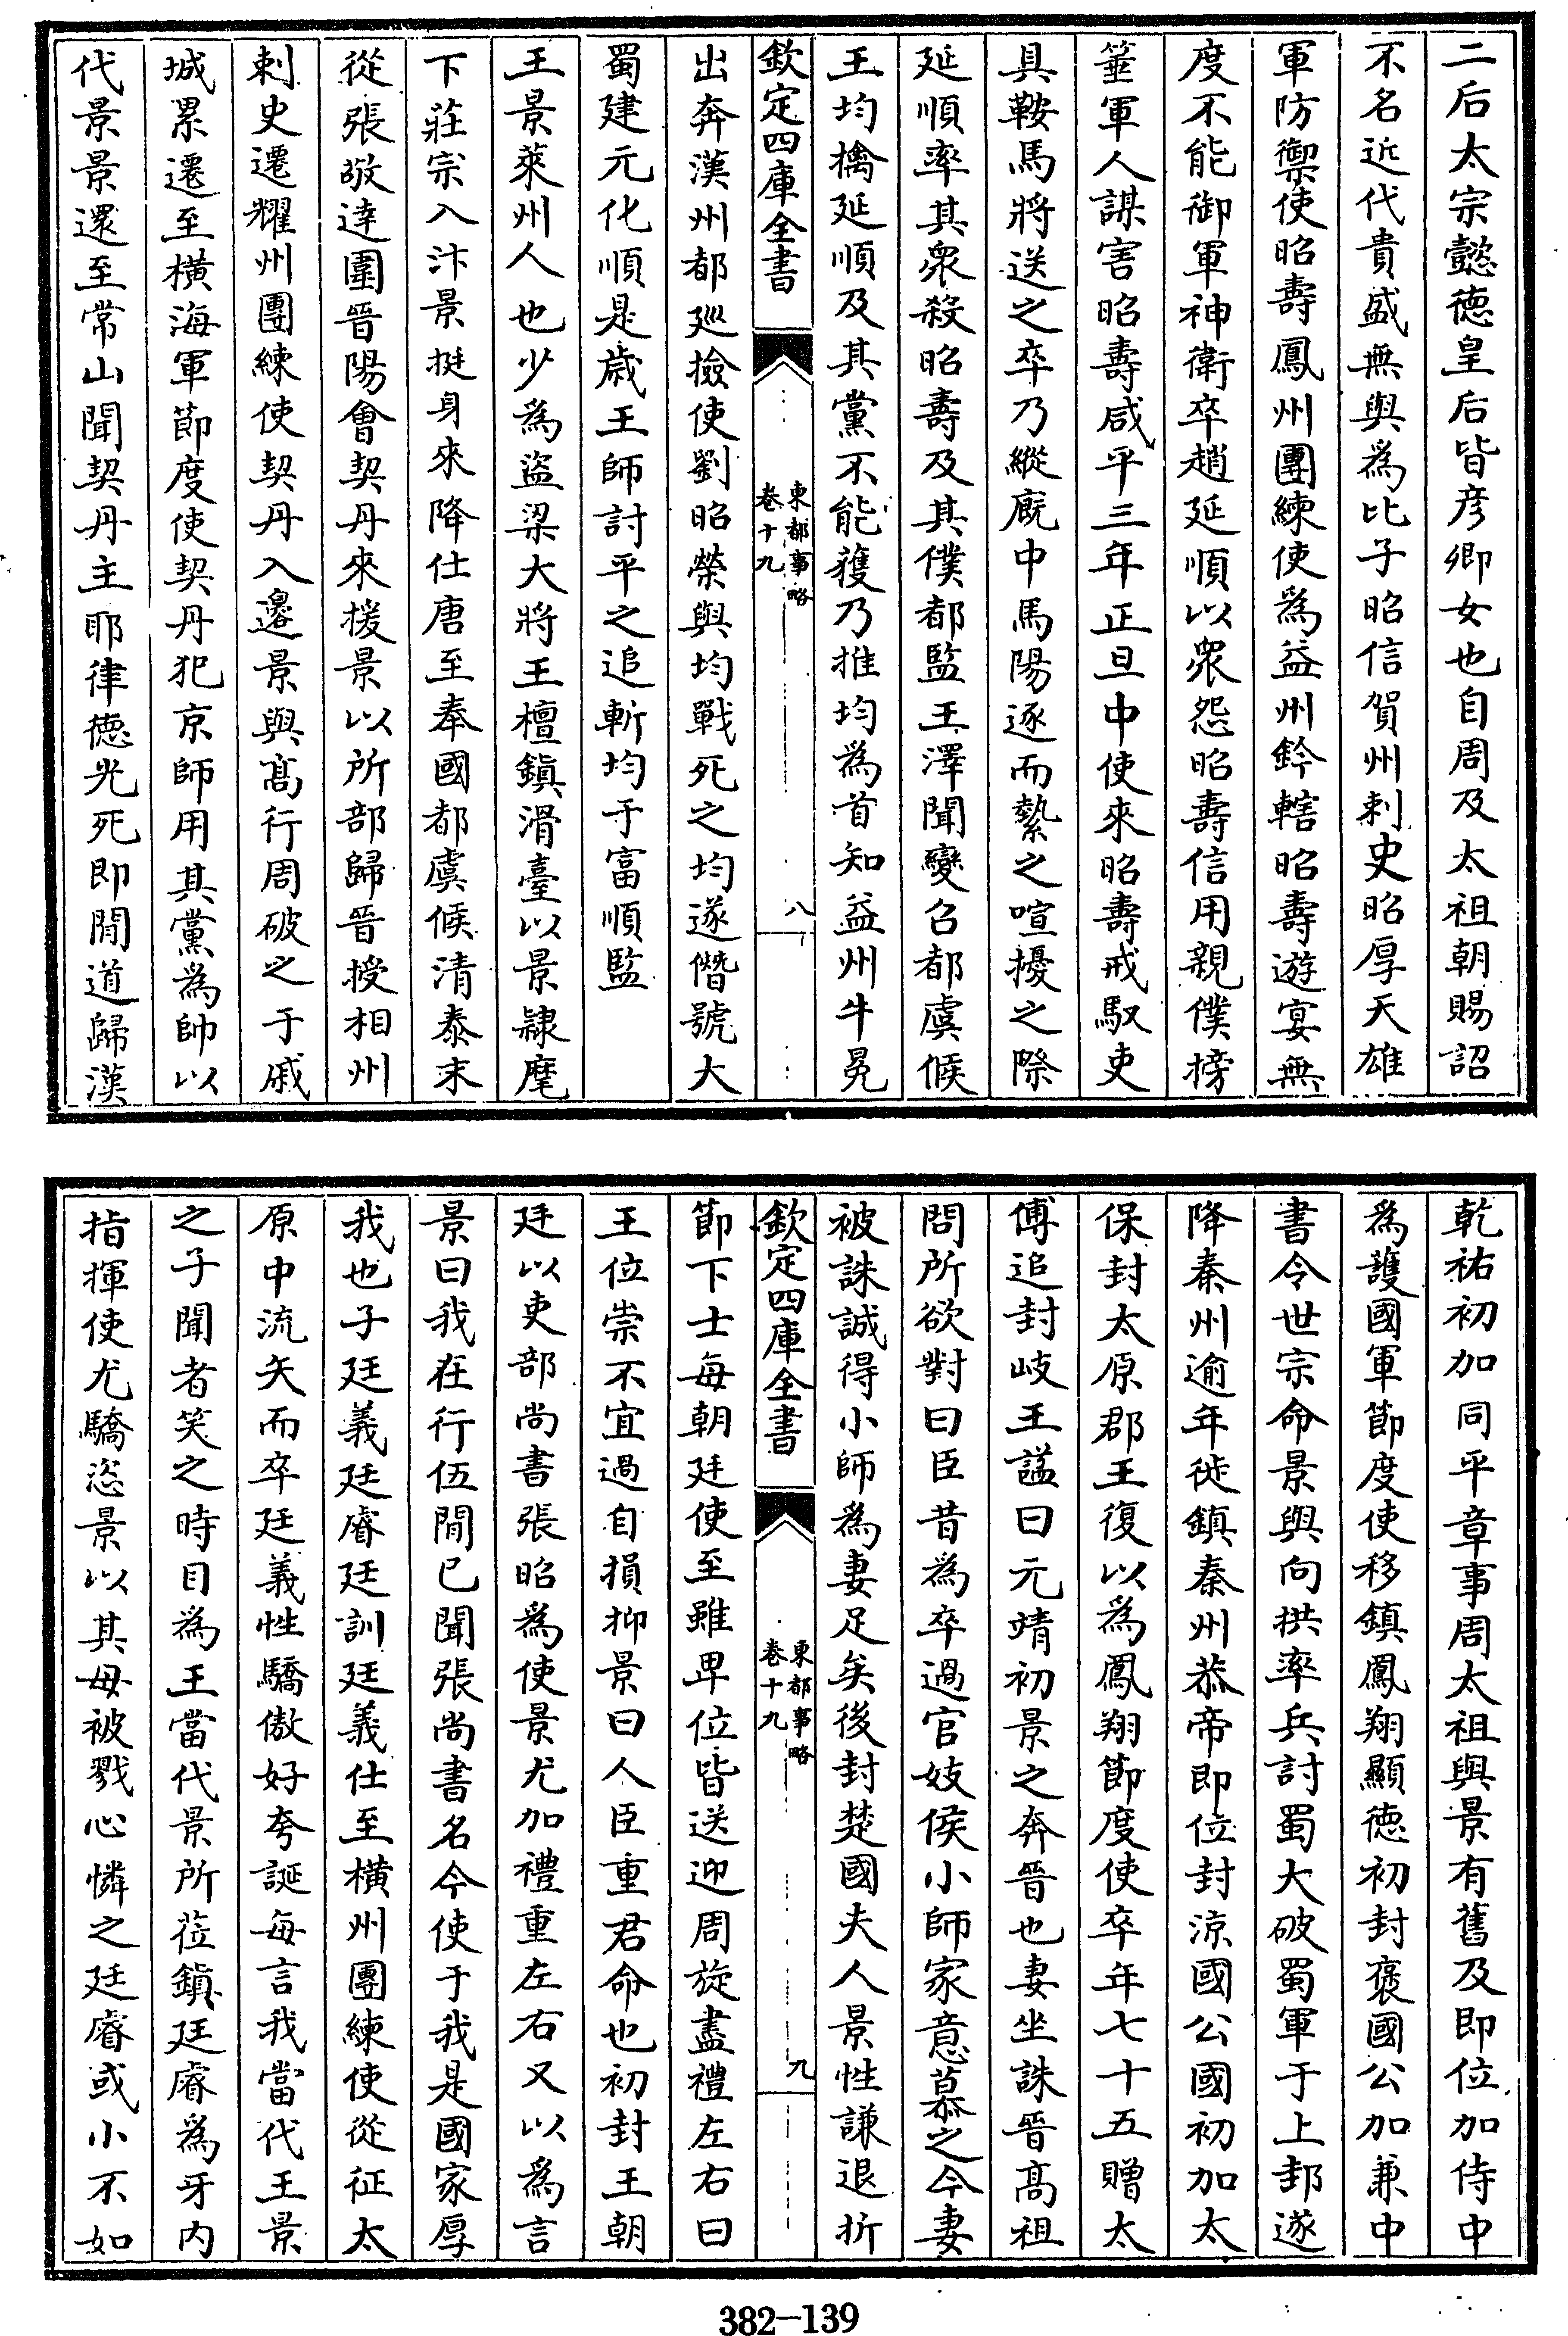 二后太宗懿德皇后皆彦卿女也自周及太祖朝賜詔
不名近代貴盛無與為比子昭信賀州刺史昭厚天雄
軍防禦使昭壽鳳州團練使為益州鈐轄昭壽遊宴無
度不能御軍神衛卒趙延順以衆怨昭壽信用親僕搒
箠軍人謀害昭壽咸平三年正旦中使來昭壽戒馭吏
具鞍馬將送之卒乃縱廐中馬陽逐而縶之喧擾之際
延順率其衆殺昭壽及其僕都監王澤聞變召都虞候
王均擒延順及其黨不能獲乃推均為首知益州牛冕
欽定四庫全書
東都事略
卷十九
八
出奔漢州都廵撿使劉昭榮與均戰死之均遂僭號大
蜀建元化順是歲王師討平之追斬均于富順監
王景萊州人也少為盜梁大將王檀鎮滑臺以景隸麾
下莊宗入汴景挺身來降仕唐至奉國都虞候清泰末
從張敬達圍晉陽會契丹來援景以所部歸晉授相州
刺史遷耀州團練使契丹入邊景與髙行周破之于戚
城累遷至橫海軍節度使契丹犯京師用其黨為帥以
代景景還至常山聞契丹主耶律德光死即間道歸漢
乾祐初加同平章事周太祖與景有舊及即位加侍中
為護國軍節度使移鎮鳳翔顯德初封褒國公加兼中
書令世宗命景與向拱率兵討蜀大破蜀軍于上邽遂
降秦州逾年徙鎮秦州恭帝即位封涼國公國初加太
保封太原郡王復以為鳳翔節度使卒年七十五贈太
傅追封岐王諡曰元靖初景之奔晉也妻坐誅晉髙祖
問所欲對曰臣昔為卒過官妓侯小師家意慕之今妻
被誅誠得小師為妻足矣後封楚國夫人景性謙退折
欽定四庫全書
東都事略
卷十九
九
節下士每朝廷使至雖卑位皆送迎周旋盡禮左右曰
王位崇不宜過自損抑景曰人臣重君命也初封王朝
廷以吏部尚書張昭為使景尤加禮重左右又以為言
景曰我在行伍間已聞張尚書名今使于我是國家厚
我也子廷義廷睿廷訓廷義仕至橫州團練使從征太
原中流矢而卒廷義性驕傲好夸誕每言我當代王景
之子聞者笑之時目為王當代景所莅鎮廷睿為牙内
指揮使尤驕恣景以其母被戮心憐之廷睿或小不如
382-139